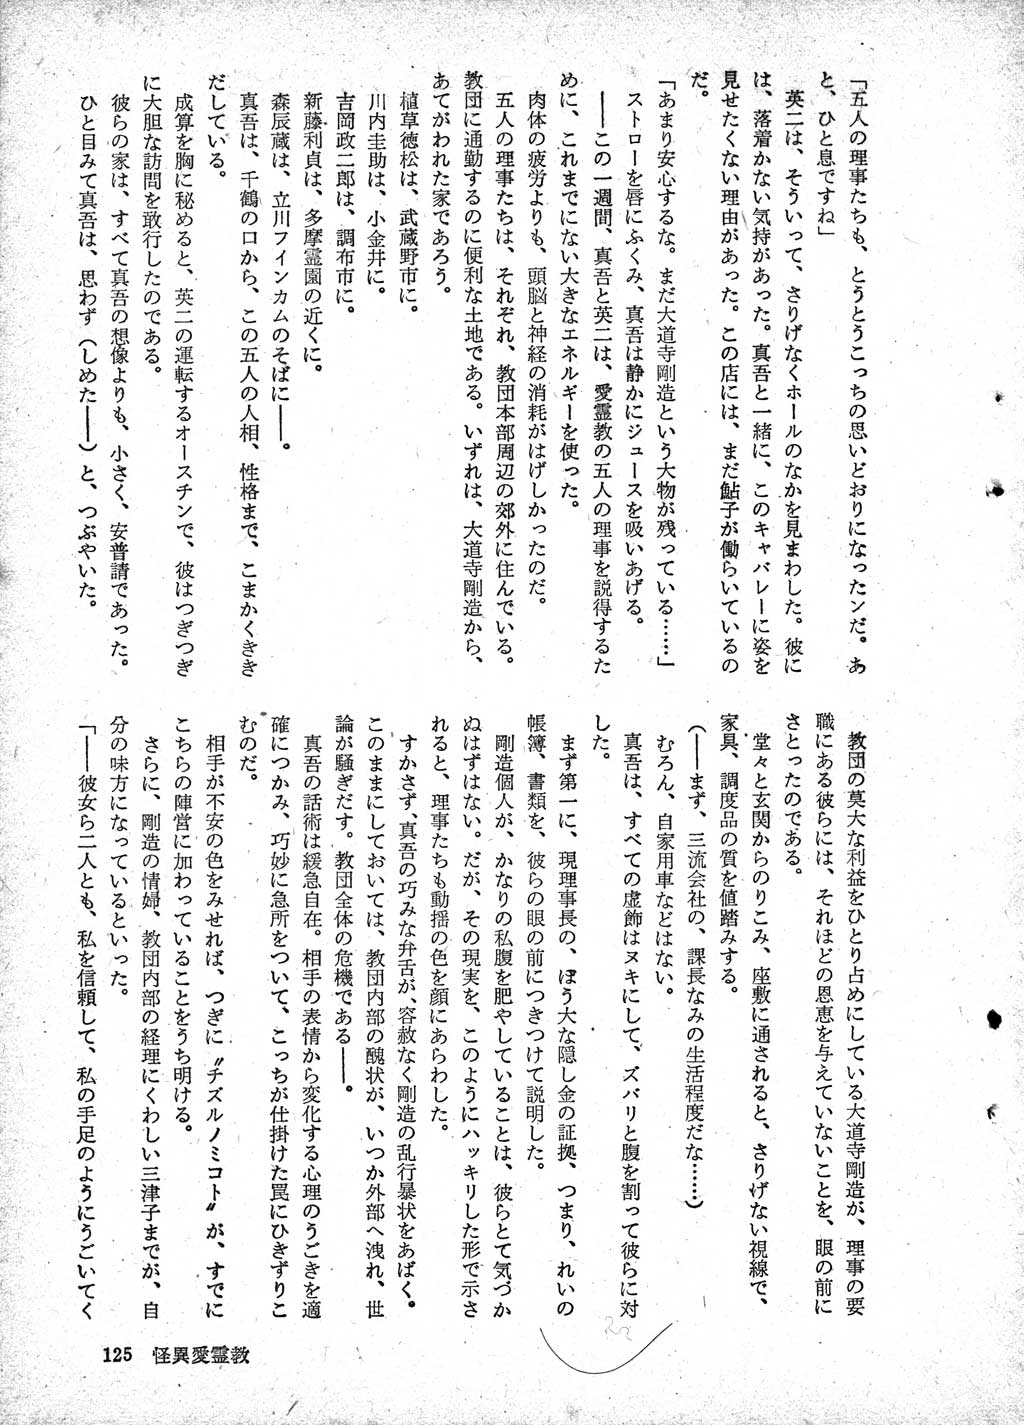 「五人の理事たちも、とうとうこっちの思いどおりになったンだ。あ
と、ひと息ですね」
　英二は、そういって、さりげなくホールのなかを見まわした。彼に
は、落着かない気持があった。真吾と一緒に、このキャバレーに姿を
見せたくない理由があった。この店には、まだ鮎子が働らいているの
だ。
「あまり安心するな。まだ大道寺剛造という大物が残っている……」
　ストローを唇にふくみ、真吾は静かにジュースを吸いあげる。
　――この一週間、真吾と英二は、愛霊教の五人の理事を説得するた
めに、これまでにない大きなエネルギーを使った。
　肉体の疲労よりも、頭脳と神経の消耗がはげしかったのだ。
　五人の理事たちは、それぞれ、教団本部周辺の郊外に住んでいる。
教団に通勤するのに便利な土地である。いずれは、大道寺剛造から、
あてがわれた家であろう。
　植草徳松は、武蔵野市に。
　川内圭助は、小金井に。
　吉岡政二郎は、調布市に。
　新藤利貞は、多摩霊園の近くに。
　森辰蔵は、立川フインカムのそばに――。
　真吾は、千鶴の口から、この五人の人相、性格まで、こまかくきき
だしている。
　成算を胸に秘めると、英二の運転するオースチンで、彼はつぎつぎ
に大胆な訪問を敢行したのである。
　彼らの家は、すべて真吾の想像よりも、小さく、安普請であった。
　ひと目みて真吾は、思わず（しめた――）と、つぶやいた。
　教団の莫大な利益をひとり占めにしている大道寺剛造が、理事の要
職にある彼らには、それほどの恩恵を与えていないことを、眼の前に
さとったのである。
　堂々と玄関からのりこみ、座敷に通されると、さりげない視線で、
家具、調度品の質を値踏みする。
（――まず、三流会社の、課長なみの生活程度だな……）
　むろん、自家用車などはない。
　真吾は、すべての虚飾はヌキにして、ズバリと腹を割って彼らに対
した。
　まず第一に、現理事長の、ぼう大な隠し金の証拠、つまり、れいの
帳簿、書類を、彼らの眼の前につきつけて説明した。
　剛造個人が、かなりの私腹を肥やしていることは、彼らとて気づか
ぬはずはない。だが、その現実を、このようにハッキリした形で示さ
れると、理事たちも動揺の色を顔にあらわした。
　すかさず、真吾の巧みな弁舌が、容赦なく剛造の乱行暴状をあばく。
このままにしておいては、教団内部の醜状が、いつか外部へ洩れ、世
論が騒ぎだす。教団全体の危機である――。
　真吾の話術は緩急自在。相手の表情から変化する心理のうごきを適
確につかみ、巧妙に急所をついて、こっちが仕掛けた罠にひきずりこ
むのだ。
　相手が不安の色をみせれば、つぎに〝チズルノミコト〟が、すでに
こちらの陣営に加わっていることをうち明ける。
　さらに、剛造の情婦、教団内部の経理にくわしい三津子までが、自
分の味方になっているといった。
「――彼女ら二人とも、私を信頼して、私の手足のようにうごいてく
125　怪異愛霊教